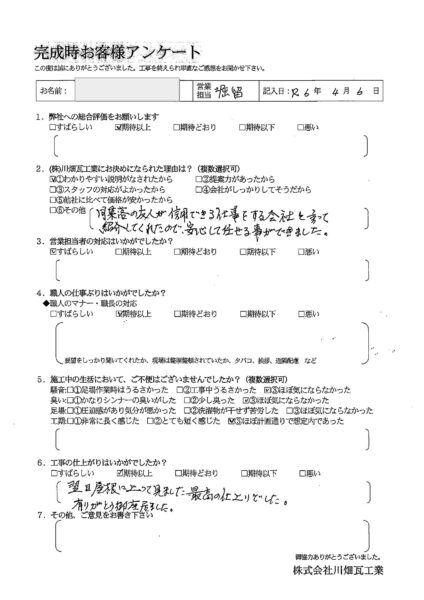 完成時お客様アンケート
この度は誠にありがとうございました。工事を終えられ率直なご感想をお聞かせ下さい。
お名前： 営業担当 堀留 記入日：R6年 4月 6日
1．弊社への総合評価をお願いします
□すばらしい ☑期待以上 □期待どおり □期待以下 □悪い
2．(株)川畑瓦工業にお決めになられた理由は？（複数選択可）
☑①わかりやすい説明がなされたから □②提案力があったから
□③スタッフの対応がよかったから □④会社がしっかりしてそうだから
□⑤他社に比べて価格が安かったから
□⑥その他 同業者の友人が信用できる仕事をする会社と言って
紹介してくれたので、安心して任せる事ができました。
3．営業担当者の対応はいかがでしたか？
☑すばらしい □期待以上 □期待どおり □期待以下 □悪い
4．職人の仕事ぶりはいかがでしたか？
◆職人のマナー・職長の対応
□すばらしい ☑期待以上 □期待どおり □期待以下 □悪い
要望をしっかり聞いてくれたか、現場は整理整頓されていたか、タバコ、挨拶、近隣配慮 など
5．施工中の生活において、ご不便はございませんでしたか？（複数選択可）
騒音:□①足場作業時はうるさかった □②工事中うるさかった ☑③ほぼ気にならなかった
臭い:□①かなりシンナーの臭いがした □②少し臭った ☑③ほぼ気にならなかった
足場:□①圧迫感があり気分が悪かった □②洗濯物が干せず苦労した □③ほぼ気にならなかった
工期:□①非常に長く感じた □②とても短く感じた ☑③ほぼ計画通りで想定内であった
6．工事の仕上がりはいかがでしたか？
□すばらしい ☑期待以上 □期待どおり □期待以下 □悪い
翌日屋根に上って見ました 最高の仕上りでした。
有りがとう御座居ました。
7．その他、ご意見をお書き下さい
御協力ありがとうございました。
株式会社川畑瓦工業